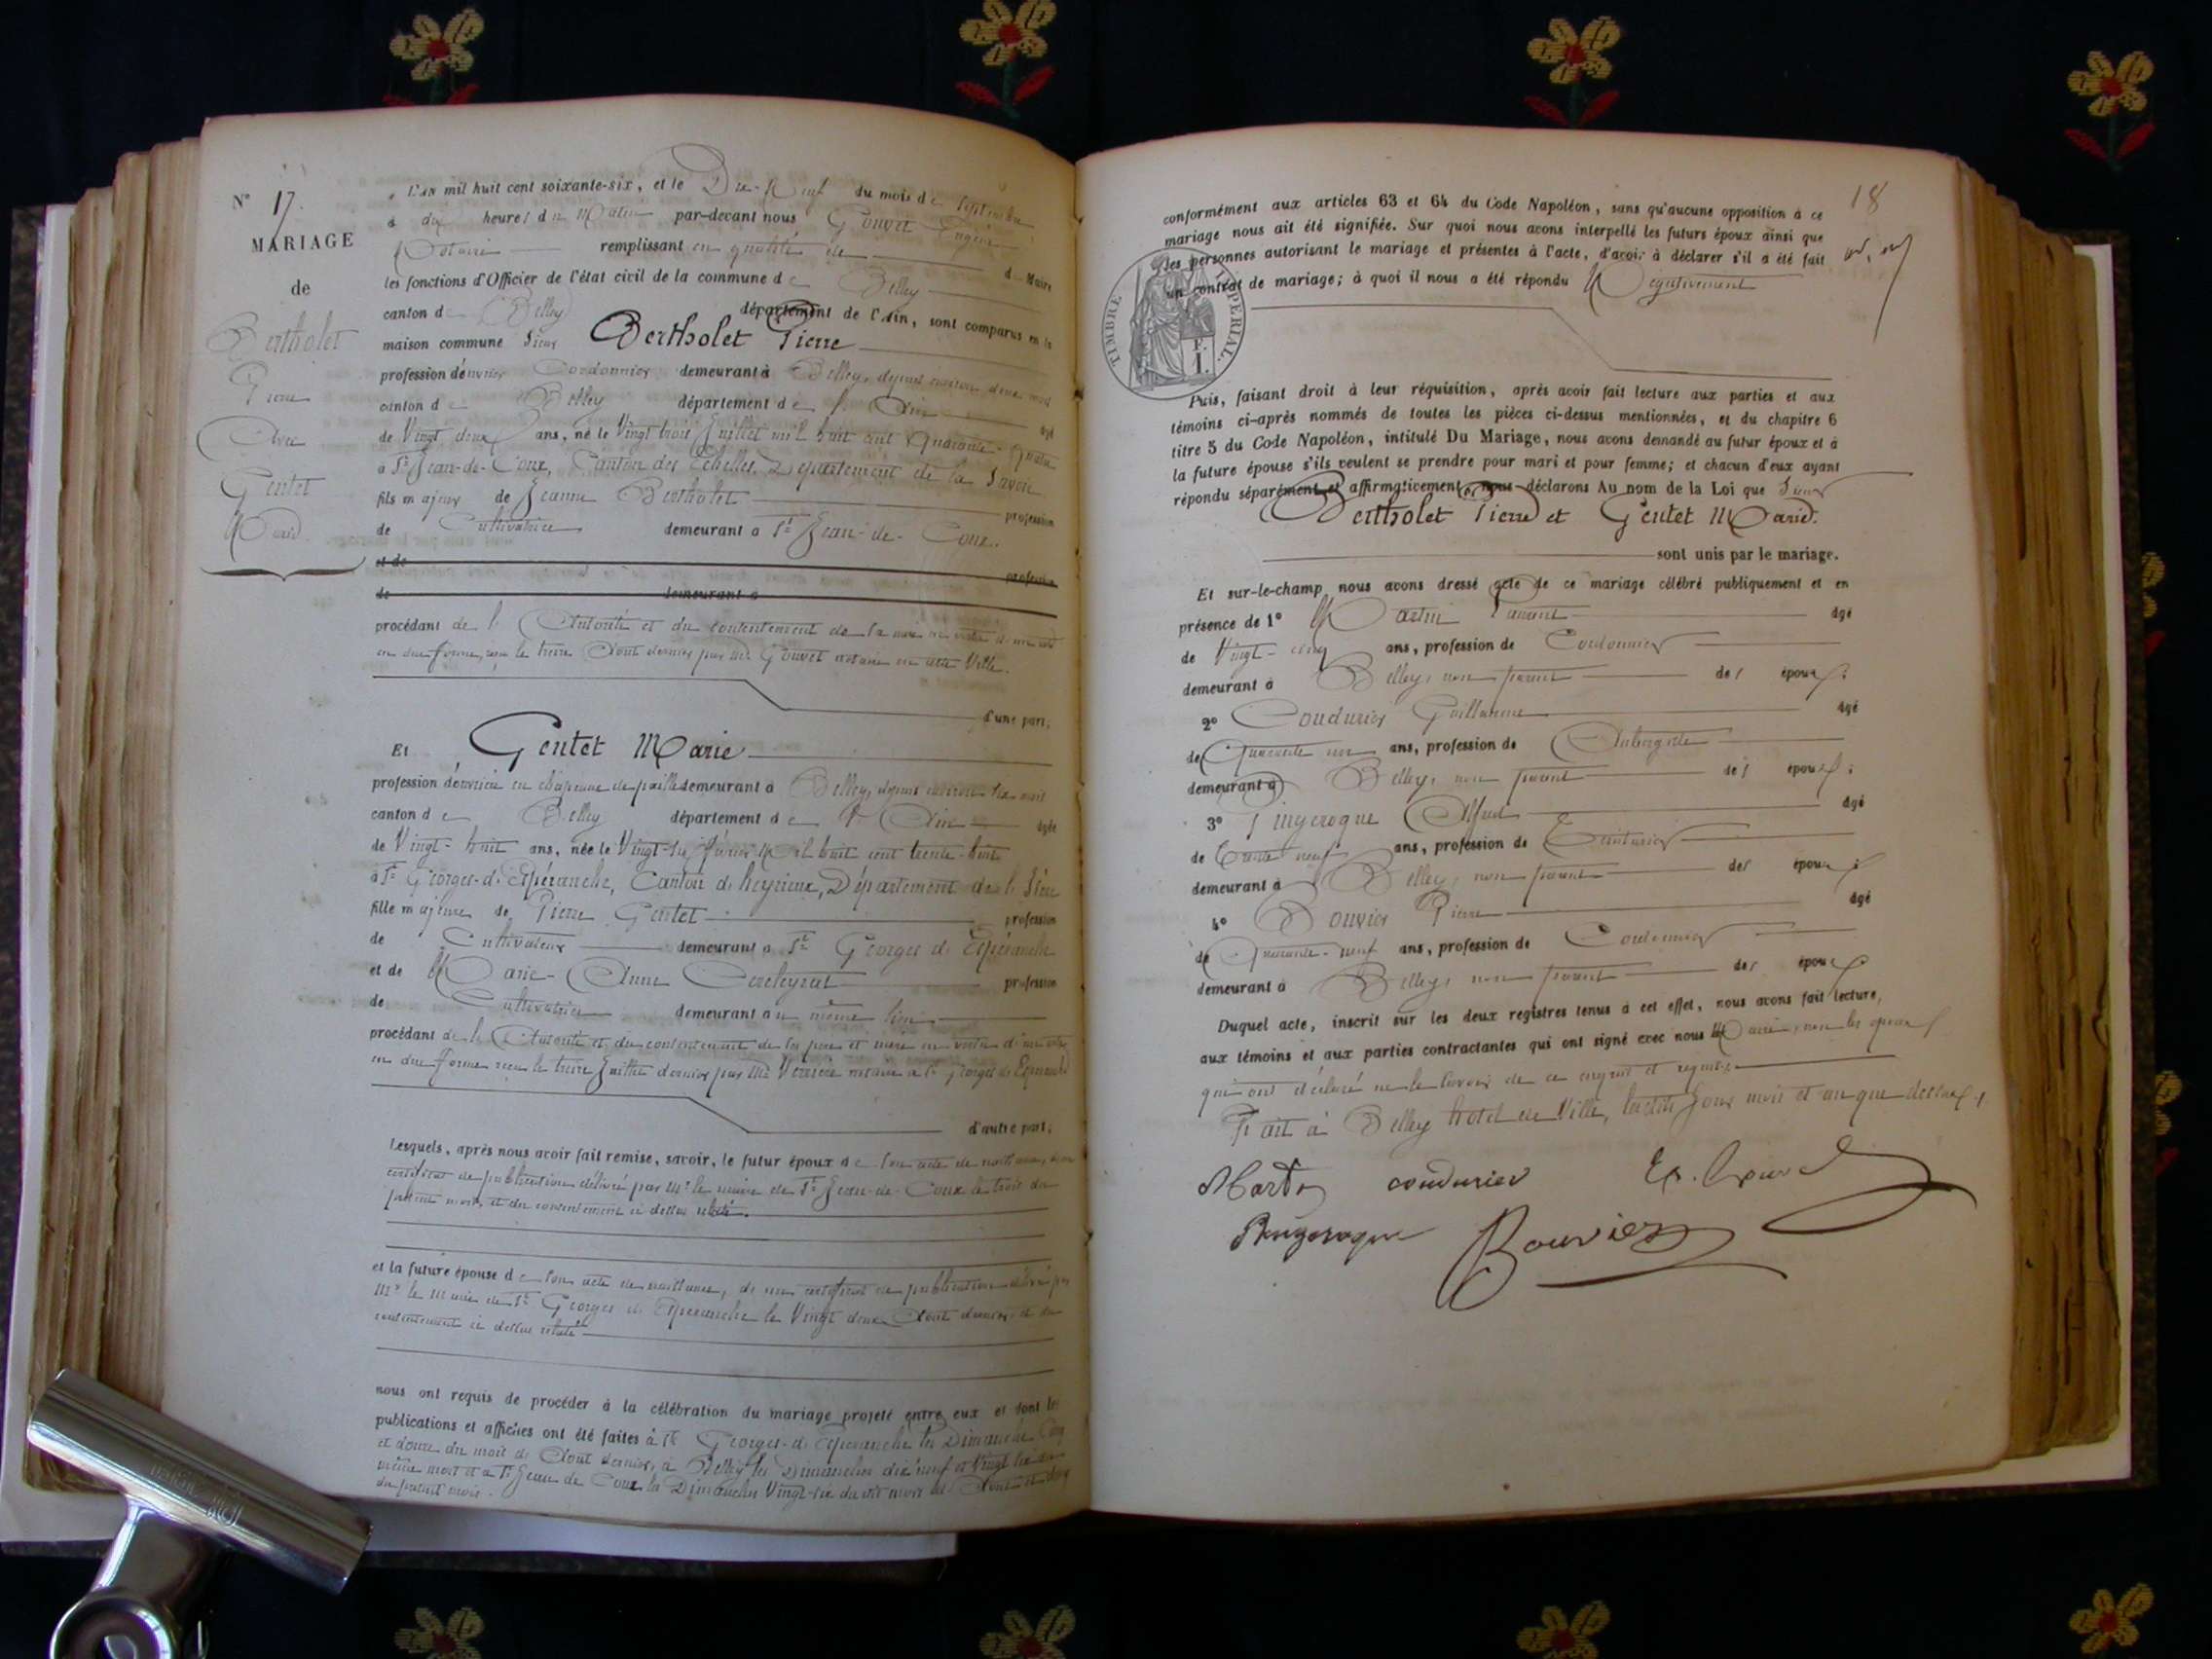 N° 17.
MARIAGE
de
Bertholet
Pierre
Avec
Gentet
Marie.
L'an mil huit cent soixante-six, et le Dix-Neuf du mois de Septembre
à dix heures du Matin par-devant nous Gouvet Eugène
Notaire remplissant en qualité de d Maire
les fonctions d'Officier de l'état civil de la commune de Belley
canton de Belley département de l'Ain, sont comparus en la
maison commune Sieur Bertholet Pierre
profession d'ouvrier Cordonnier demeurant à Belley, depuis environ deux mois
canton de Belley département de l'Ain âgé
de Vingt deux ans, né le Vingt trois Juillet mil huit cent Quarante-Quatre
à St Jean-de-Coux, Canton des Echelles, Département de la Savoie
fils majeur de Jeanne Bertholet profession
de Cultivatrice demeurant à St Jean-de-Coux.
et de profession
de demeurant à
procédant de l'Autorité et du consentement de sa mère en vertu d'un acte
en due forme, reçu le treize Août dernier par Me Gouvet notaire en cette Ville.
d'une part;
Et Gentet Marie
profession d'ouvrière en chapeaux de paille demeurant à Belley, depuis environ six mois
canton de Belley département de l'Ain âgée
de Vingt-huit ans, née le Vingt-six février Mil huit cent trente-huit
à St Georges-d'Espéranche, Canton d'heyrieux, Département de l'Isère
fille majeure de Pierre Gentet profession
de Cultivateur demeurant à St Georges d'Espéranche
et de Marie-Anne profession
de Cultivatrice demeurant au même lieu
procédant de l'Autorité et du consentement de ses père et mère en vertu d'un acte
en due forme reçu le treize Juillet dernier par Me Verrière notaire à St Georges d'Espéranche
d'autre part;
Lesquels, après nous avoir fait remise, savoir, le futur époux de son acte de naissance, d'un
certificat de publication délivré par Mr le maire de St Jean-de-Coux le trois du
présent mois, et du consentement ci dessus relaté.
et la future épouse de son acte de naissance, de un certificat de publication délivré par
Mr le maire de St Georges d'Espéranche le Vingt deux Août dernier et du
consentement ci dessus relaté
nous ont requis de procéder à la célébration du mariage projeté entre eux et dont les
publications et affiches ont été faites à St Georges-d'Espéranche les Dimanche Cinq
et douze du mois d'Août dernier, à Belley les Dimanches dix neuf et Vingt six du
même mois et à St Jean de Coux les Dimanches Vingt-six du dit mois d'Août et deux
du présent mois.
18
conformément aux articles 63 et 64 du Code Napoléon, sans qu'aucune opposition à ce
mariage nous ait été signifiée. Sur quoi nous avons interpellé les futurs époux ainsi que
les personnes autorisant le mariage et présentes à l'acte, d'avoir à déclarer s'il a été fait
un contrat de mariage; à quoi il nous a été répondu Négativement
TIMBRE IMPERIAL.
F.
1.
Puis, faisant droit à leur réquisition, après avoir fait lecture aux parties et aux
témoins ci-après nommés de toutes les pièces ci-dessus mentionnées, et du chapitre 6
titre 5 du Code Napoléon, intitulé Du Mariage, nous avons demandé au futur époux et à
la future épouse s'ils veulent se prendre pour mari et pour femme; et chacun d'eux ayant
répondu séparément et affirmativement, nous déclarons Au nom de la Loi que Sieur
Bertholet Pierre et Gentet Marie.
sont unis par le mariage.
Et sur-le-champ nous avons dressé acte de ce mariage célébré publiquement et en
présence de 1° Martin Laurent âgé
de Vingt-cinq ans, profession de Cordonnier
demeurant à Belley, non parent des époux;
2° Coudurier Guillaume âgé
de Quarante un ans, profession de Aubergiste
demeurant à Belley, non parent des époux;
3° Alfred âgé
de Trente neuf ans, profession de Teinturier
demeurant à Belley, non parent des époux;
4° Bouvier Pierre âgé
de Quarante-neuf ans, profession de Cordonnier
demeurant à Belley, non parent des époux
Duquel acte, inscrit sur les deux registres tenus à cet effet, nous avons fait lecture,
aux témoins et aux parties contractantes qui ont signé avec nous Maire, non les époux
qui ont déclaré ne le savoir de ce enquis et requis.
Fait à Belley hotel de Ville, lesdits Jour mois et an que dessus.
Martin coudurier
Bouvier